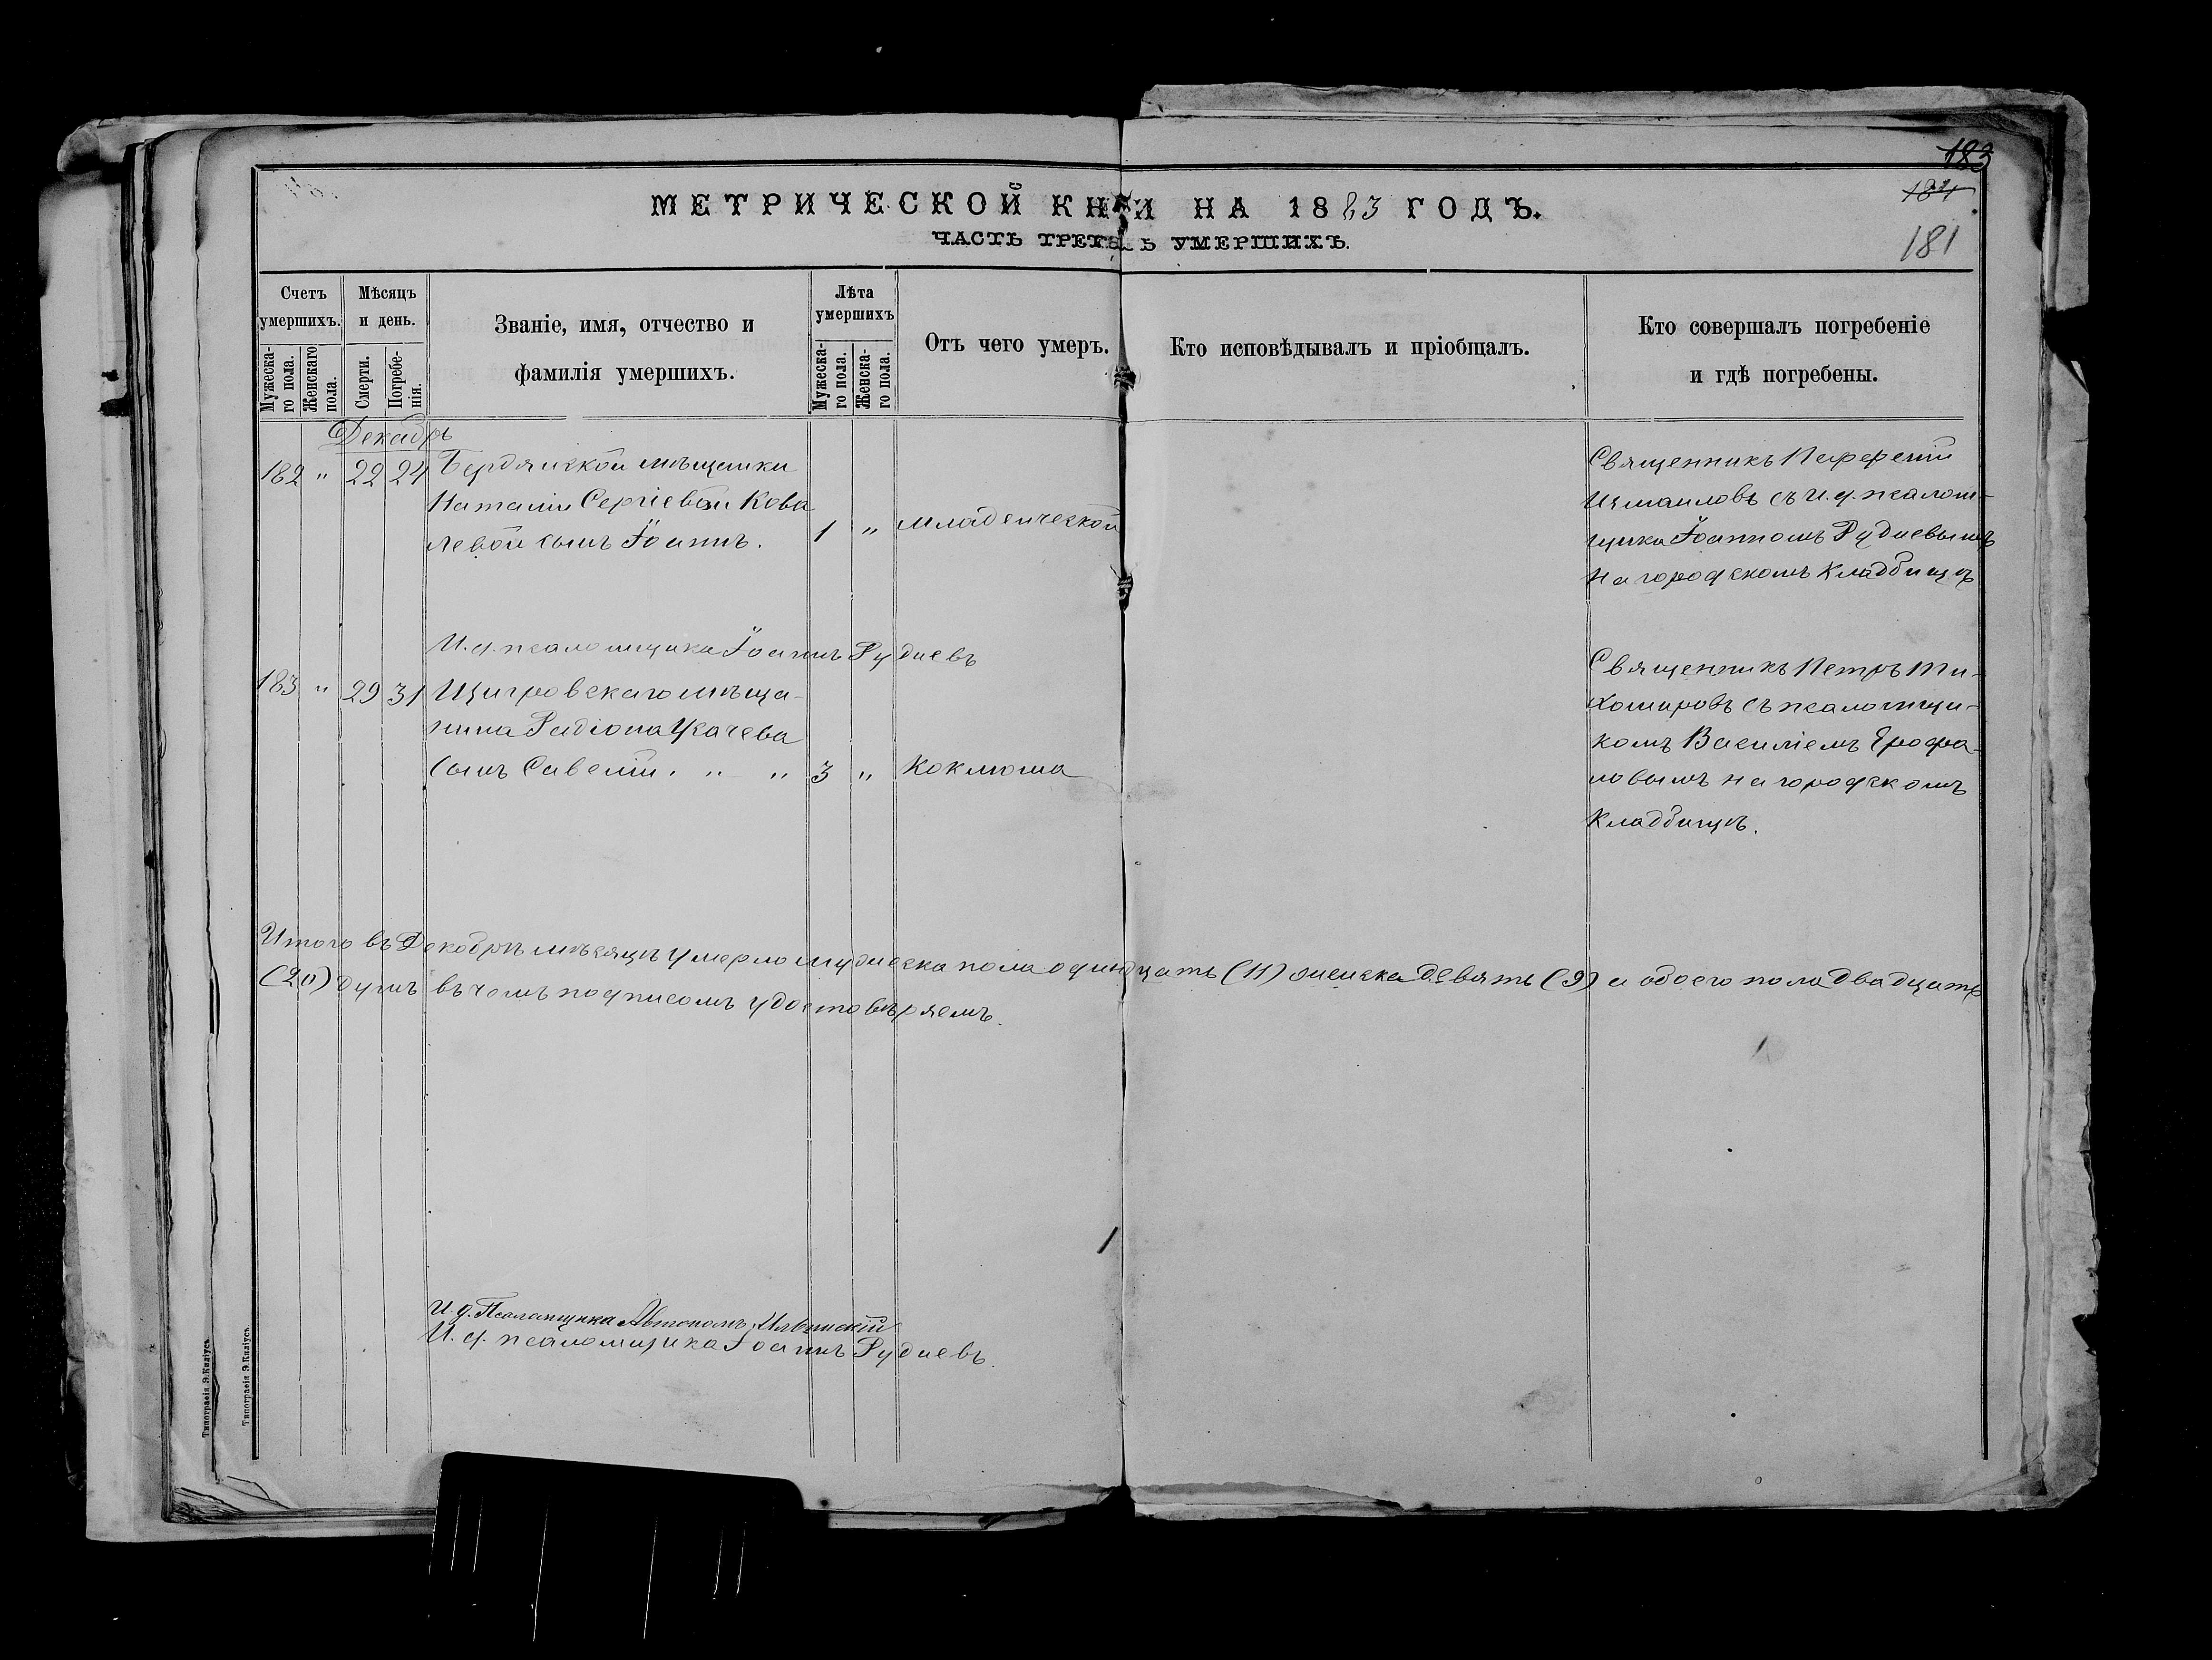 183
184
181
МЕТРИЧЕСКОЙ КНИ НА 1883 ГОДЪ.
ЧАСТЬ ТРЕТЬ Ъ УМЕРШИХЪ.
Счетъ умершихъ.
Мужеска-го пола.
Женскаго пола.
Мѣсяцъ и день.
Смерти.
Погребе-нія.
Званіе, имя, отчество и
фамилія умершихъ.
Лѣта умершихъ
Мужеска-го пола.
Женска-го пола.
Отъ чего умеръ.
Кто исповѣдывалъ и пріобщалъ.
Кто совершалъ погребеніе
и гдѣ погребены.
Декабрь
182 " 22 24 Бердянской мѣщанки
Наталіи Сергіевой Кова
левой сынъ Іоаннъ. 1 " младенческой
Священникъ Парфеній
Измаиловъ съ И. д. псалом-
щика Іоанномъ Рудневымъ
на городскомъ кладбищѣ
И. д. псаломщика Іоаннъ Рудневъ
183 " 29 31 Щигровскаго мѣща-
нина Радіона
сынъ Савелій. " " 3 " Коклюша
Священникъ Петръ Ти-
хомировъ съ псаломщи-
комъ Василіемъ
на городскомъ
кладбищѣ.
Итого въ Декабрѣ мѣсяцѣ умерло мужеска пола одинцать (11) женска девять (9) а обоего пола двадцать
(20) душъ въ чемъ подписомъ удостовѣряемъ.
И. д. Псаломщика Автономъ Ильинскій
И. д. псаломщика Іоаннъ Рудневъ.
Типографія Э. Киліусъ
Типографія Э. Киліусъ